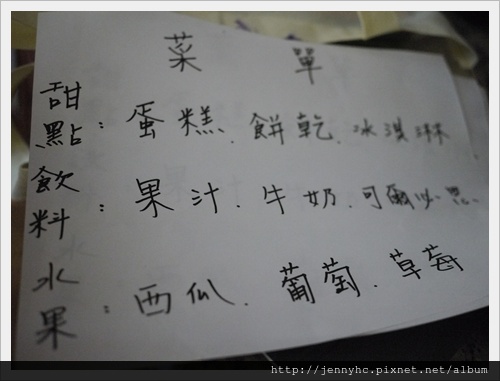 菜單
甜點：蛋糕、餅乾、冰淇淋
飲料：果汁、牛奶、可爾必思、
水果：西瓜、葡萄、草莓
http://jennyhc.pixnet.net/album